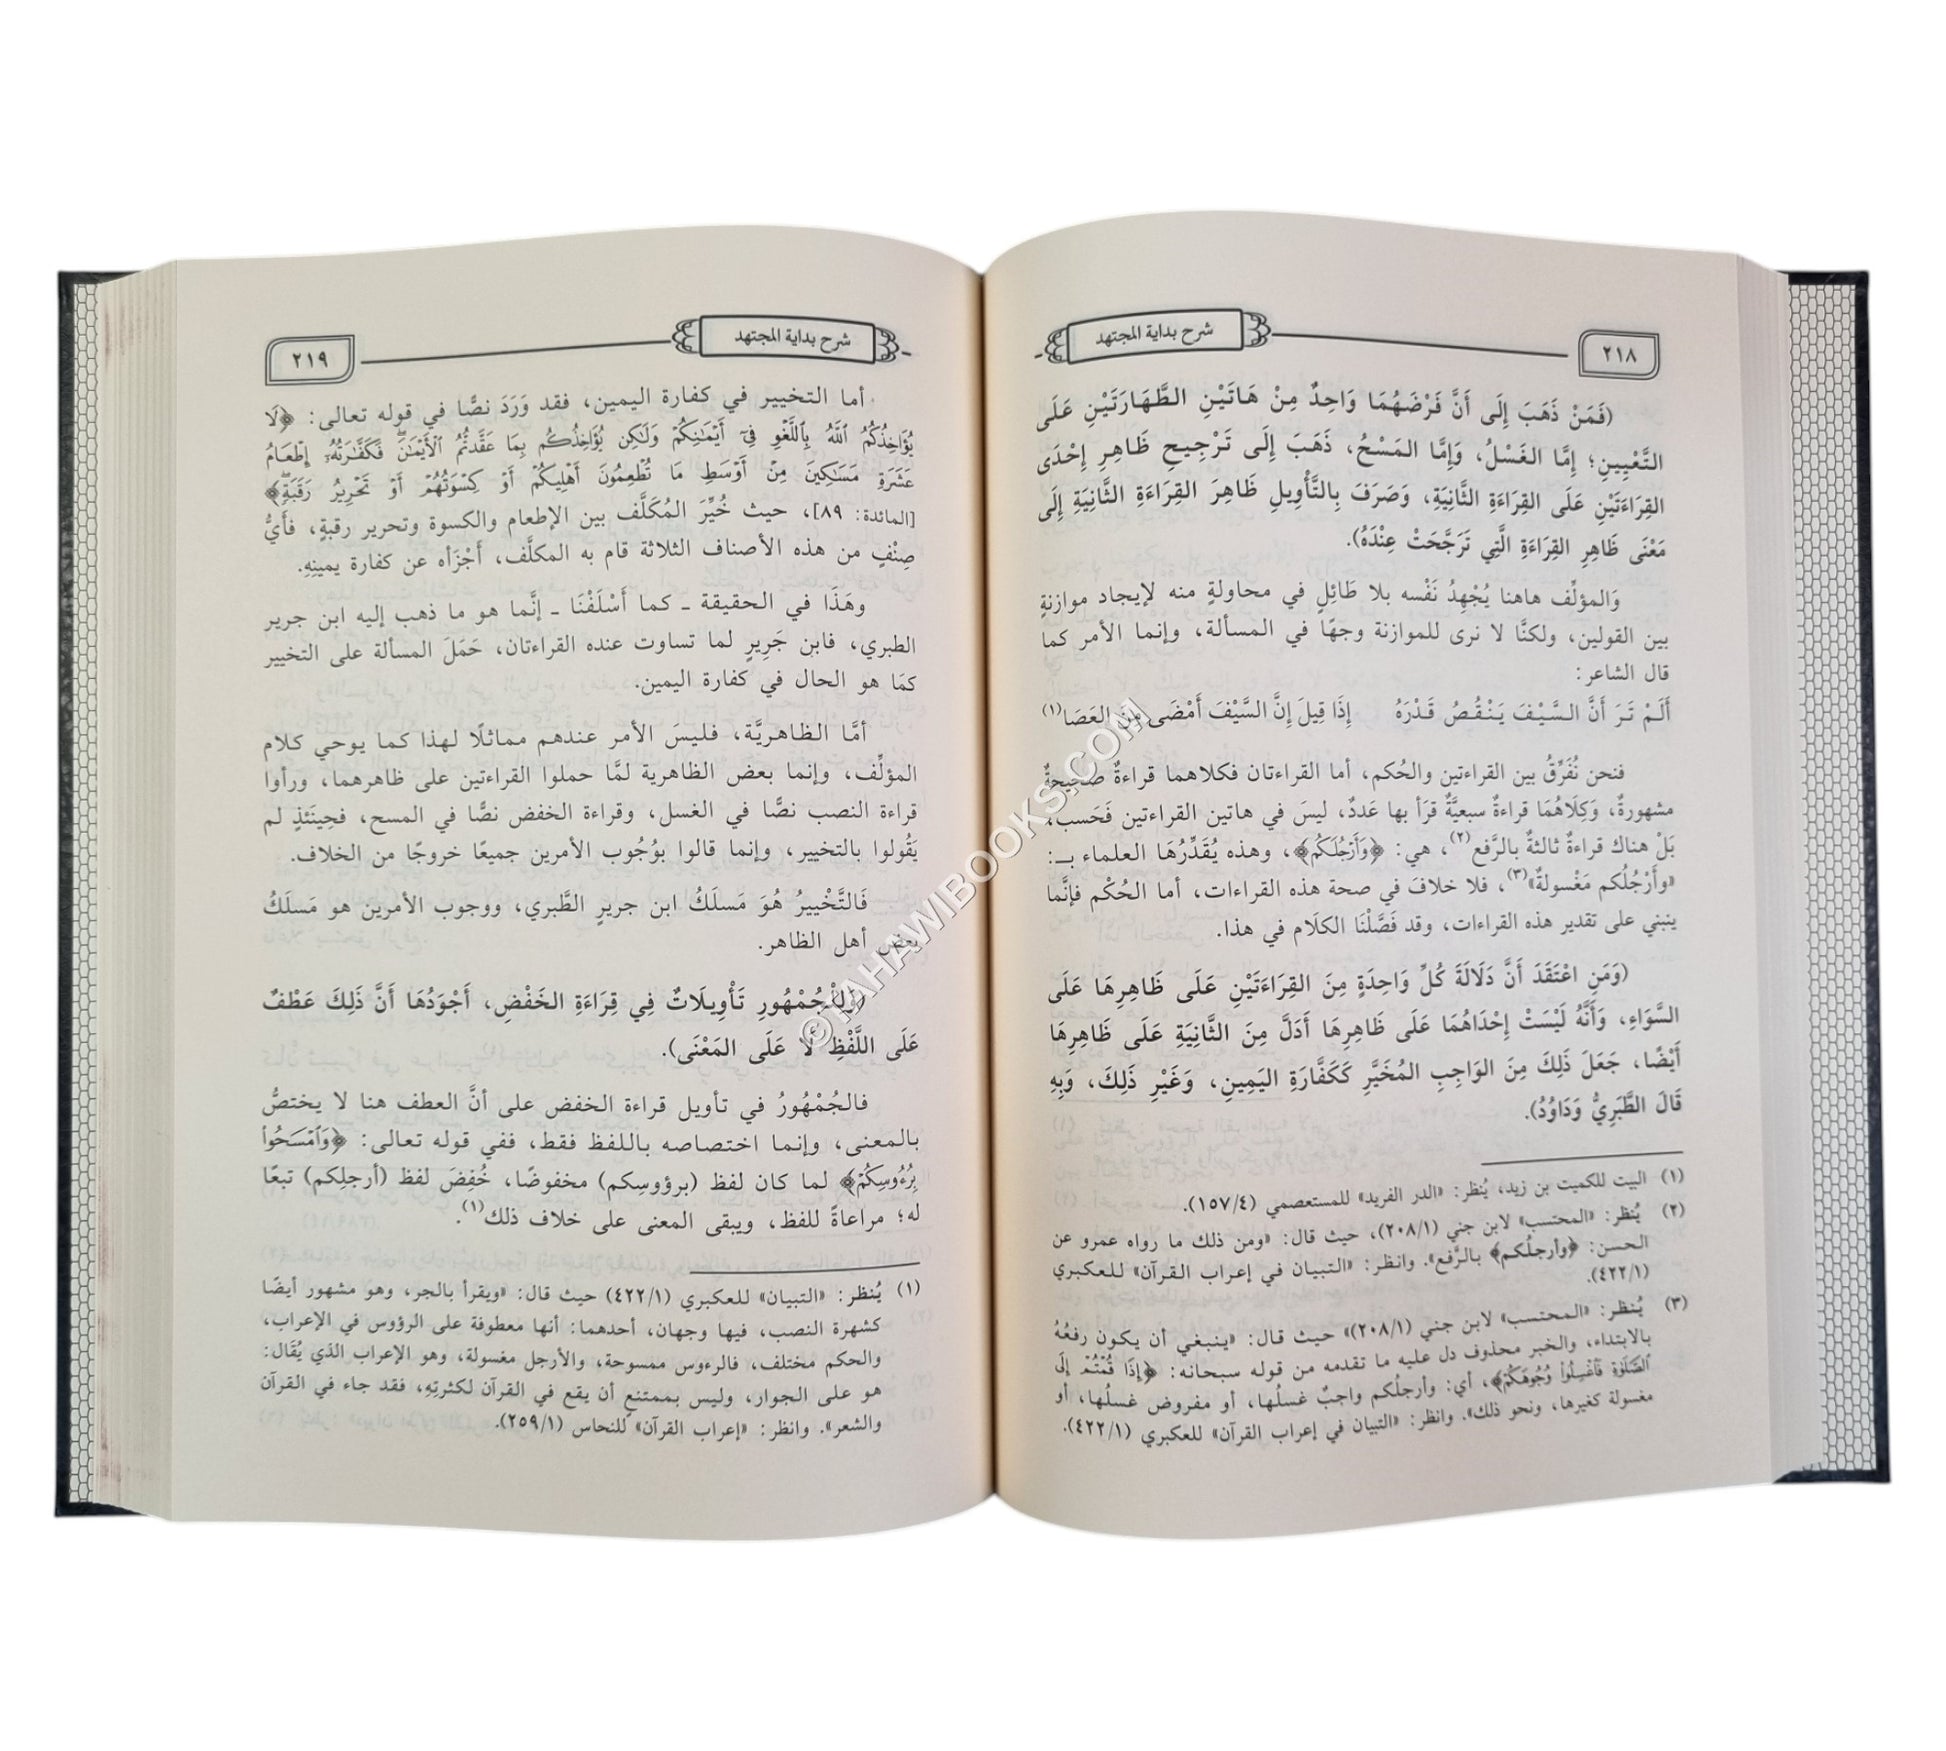 ٢١٨
شرح بداية المجتهد
(فَمَنْ ذَهَبَ إِلَى أَنَّ فَرْضَهُمَا وَاحِدٌ مِنْ هَاتَيْنِ الطَّهَارَتَيْنِ عَلَى
التَّعْيِينِ؛ إِمَّا الغَسْلُ، وَإِمَّا المَسْحُ، ذَهَبَ إِلَى تَرْجِيحِ ظَاهِرِ إِحْدَى
القِرَاءَتَيْنِ عَلَى القِرَاءَةِ الثَّانِيَةِ، وَصَرَفَ بِالتَّأْوِيلِ ظَاهِرَ القِرَاءَةِ الثَّانِيَةِ إِلَى
مَعْنَى ظَاهِرِ القِرَاءَةِ الَّتِي تَرَجَّحَتْ عِنْدَهُ).
وَالمؤلِّف هاهنا يُجْهِدُ نَفْسه بلا طَائِلٍ في محاولةٍ منه لإيجاد موازنةٍ
بين القولين، ولكنَّا لا نرى للموازنة وجهًا في المسألة، وإنما الأمر كما
قال الشاعر:
أَلَمْ تَرَ أَنَّ السَّيْفَ يَنْقُصُ قَدْرَهُ إِذَا قِيلَ إِنَّ السَّيْفَ أَمْضَى مِنَ العَصَا(١)
فنحن نُفَرِّقُ بين القراءتين والحُكم، أما القراءتان فكلاهما قراءةٌ صحيحةٌ
مشهورةٌ، وَكِلَاهُمَا قراءةٌ سبعيَّةٌ قرَأ بها عَددٌ، ليسَ في هاتين القراءتين فَحَسب،
بَلْ هناك قراءةٌ ثالثةٌ بالرَّفع(٢)، هي: ﴿وَأَرْجُلُكُم﴾، وهذه يُقَدِّرُهَا العلماء بـ:
«وأَرْجُلُكم مَغْسولةٌ»(٣)، فلا خلافَ في صحة هذه القراءات، أما الحُكْم فإنَّما
ينبني على تقدير هذه القراءات، وقد فَصَّلْنَا الكلَام في هذا.
(وَمَنِ اعْتَقَدَ أَنَّ دَلَالَةَ كُلِّ وَاحِدَةٍ مِنَ القِرَاءَتَيْنِ عَلَى ظَاهِرِهَا عَلَى
السَّوَاءِ، وَأَنَّهُ لَيْسَتْ إِحْدَاهُمَا عَلَى ظَاهِرِهَا أَدَلَّ مِنَ الثَّانِيَةِ عَلَى ظَاهِرِهَا
أَيْضًا، جَعَلَ ذَلِكَ مِنَ الوَاجِبِ المُخَيَّرِ كَكَفَّارَةِ اليَمِينِ، وَغَيْرِ ذَلِكَ، وَبِهِ
قَالَ الطَّبَرِيُّ وَدَاوُدُ).
(١) البيت للكميت بن زيد، يُنظر: «الدر الفريد» للمستعصمي (٤/١٥٧).
(٢) يُنظر: «المحتسب» لابن جني (١/٢٠٨)، حيث قال: «ومن ذلك ما رواه عمرو عن
الحسن: ﴿وأرجلُكم﴾ بالرَّفع». وانظر: «التبيان في إعراب القرآن» للعكبري
(١/٤٢٢).
(٣) يُنظر: «المحتسب» لابن جني (١/٢٠٨)» حيث قال: «ينبغي أن يكون رفعُهُ
بالابتداء، والخبر محذوف دل عليه ما تقدمه من قوله سبحانه: ﴿إِذَا قُمْتُمْ إِلَى
الصَّلَوٰةِ فَاغْسِلُوا وُجُوهَكُمْ﴾، أي: وأرجلُكم واجبٌ غسلُها، أو مفروض غسلُها، أو
مغسولة كغيرها، ونحو ذلك». وانظر: «التبيان في إعراب القرآن» للعكبري (١/٤٢٢).
شرح بداية المجتهد
٢١٩
أما التخيير في كفارة اليمين، فقد وَرَدَ نصًّا في قوله تعالى: ﴿لَا
يُؤَاخِذُكُمُ ٱللَّهُ بِٱللَّغْوِ فِىٓ أَيْمَٰنِكُمْ وَلَٰكِن يُؤَاخِذُكُم بِمَا عَقَّدتُّمُ ٱلْأَيْمَٰنَ ۖ فَكَفَّٰرَتُهُۥٓ إِطْعَامُ
عَشَرَةِ مَسَٰكِينَ مِنْ أَوْسَطِ مَا تُطْعِمُونَ أَهْلِيكُمْ أَوْ كِسْوَتُهُمْ أَوْ تَحْرِيرُ رَقَبَةٍ ۖ﴾
[المائدة: ٨٩]، حيث خُيِّرَ المُكَلَّف بين الإطعام والكسوة وتحرير رقبةٍ، فأَيُّ
صِنْفٍ من هذه الأصناف الثلاثة قام به المكلَّف، أَجْزَأه عن كفارة يمينِهِ.
وهَذَا في الحقيقة - كما أَسْلَفْنَا - إنَّما هو ما ذهب إليه ابن جرير
الطبري، فابن جَرِيرٍ لما تساوت عنده القراءتان، حَمَلَ المسألة على التخيير
كمَا هو الحال في كفارة اليمين.
أمَّا الظاهريَّة، فليسَ الأمر عندهم مماثلًا لهذا كما يوحي كلام
المؤلِّف، وإنما بعض الظاهرية لمَّا حملوا القراءتين على ظاهرهما، ورأوا
قراءة النصب نصًّا في الغسل، وقراءة الخفض نصًّا في المسح، فحِينَئذٍ لم
يَقُولوا بالتخيير، وإنما قالوا بوُجُوب الأمرين جميعًا خروجًا من الخلاف.
فَالتَّخْييرُ هُوَ مَسلَكُ ابن جريرٍ الطَّبري، ووجوب الأمرين هو مَسلَكُ
بعض أهل الظاهر.
(وَلِلْجُمْهُورِ تَأْوِيلَاتٌ فِي قِرَاءَةِ الخَفْضِ، أَجْوَدُهَا أَنَّ ذَلِكَ عَطْفٌ
عَلَى اللَّفْظِ لَا عَلَى المَعْنَى).
فالجُمْهُورُ في تأويل قراءة الخفض على أنَّ العطف هنا لا يختصُّ
بالمعنى، وإنما اختصاصه باللفظ فقط، ففي قوله تعالى: ﴿وَٱمْسَحُوا۟
بِرُءُوسِكُمْ﴾ لما كان لفظ (برؤوسِكم) مخفوضًا، خُفِضَ لفظ (أرجلِكم) تبعًا
له؛ مراعاةً للفظ، ويبقى المعنى على خلاف ذلك(١).
(١) يُنظر: «التبيان» للعكبري (١/٤٢٢) حيث قال: «ويقرأ بالجر، وهو مشهور أيضًا
كشهرة النصب، فيها وجهان، أحدهما: أنها معطوفة على الرؤوس في الإعراب،
والحكم مختلف، فالرءوس ممسوحة، والأرجل مغسولة، وهو الإعراب الذي يُقَال:
هو على الجوار، وليس بممتنع أن يقع في القرآن لكثرتِهِ، فقد جاء في القرآن
والشعر». وانظر: «إعراب القرآن» للنحاس (١/٢٥٩).
©TAHAWIBOOKS.COM